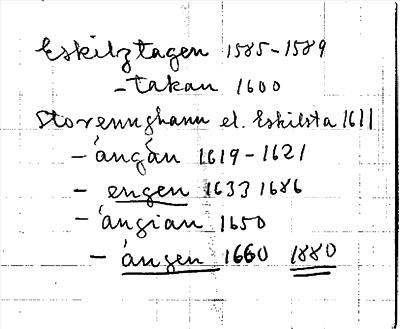 Eskilztagen 1585-1589
-takan 1600
el. Eskilsta 1611
- ångån 1619-1621
- engen 1633 1686
- ångian 1650
- ången 1660 1880